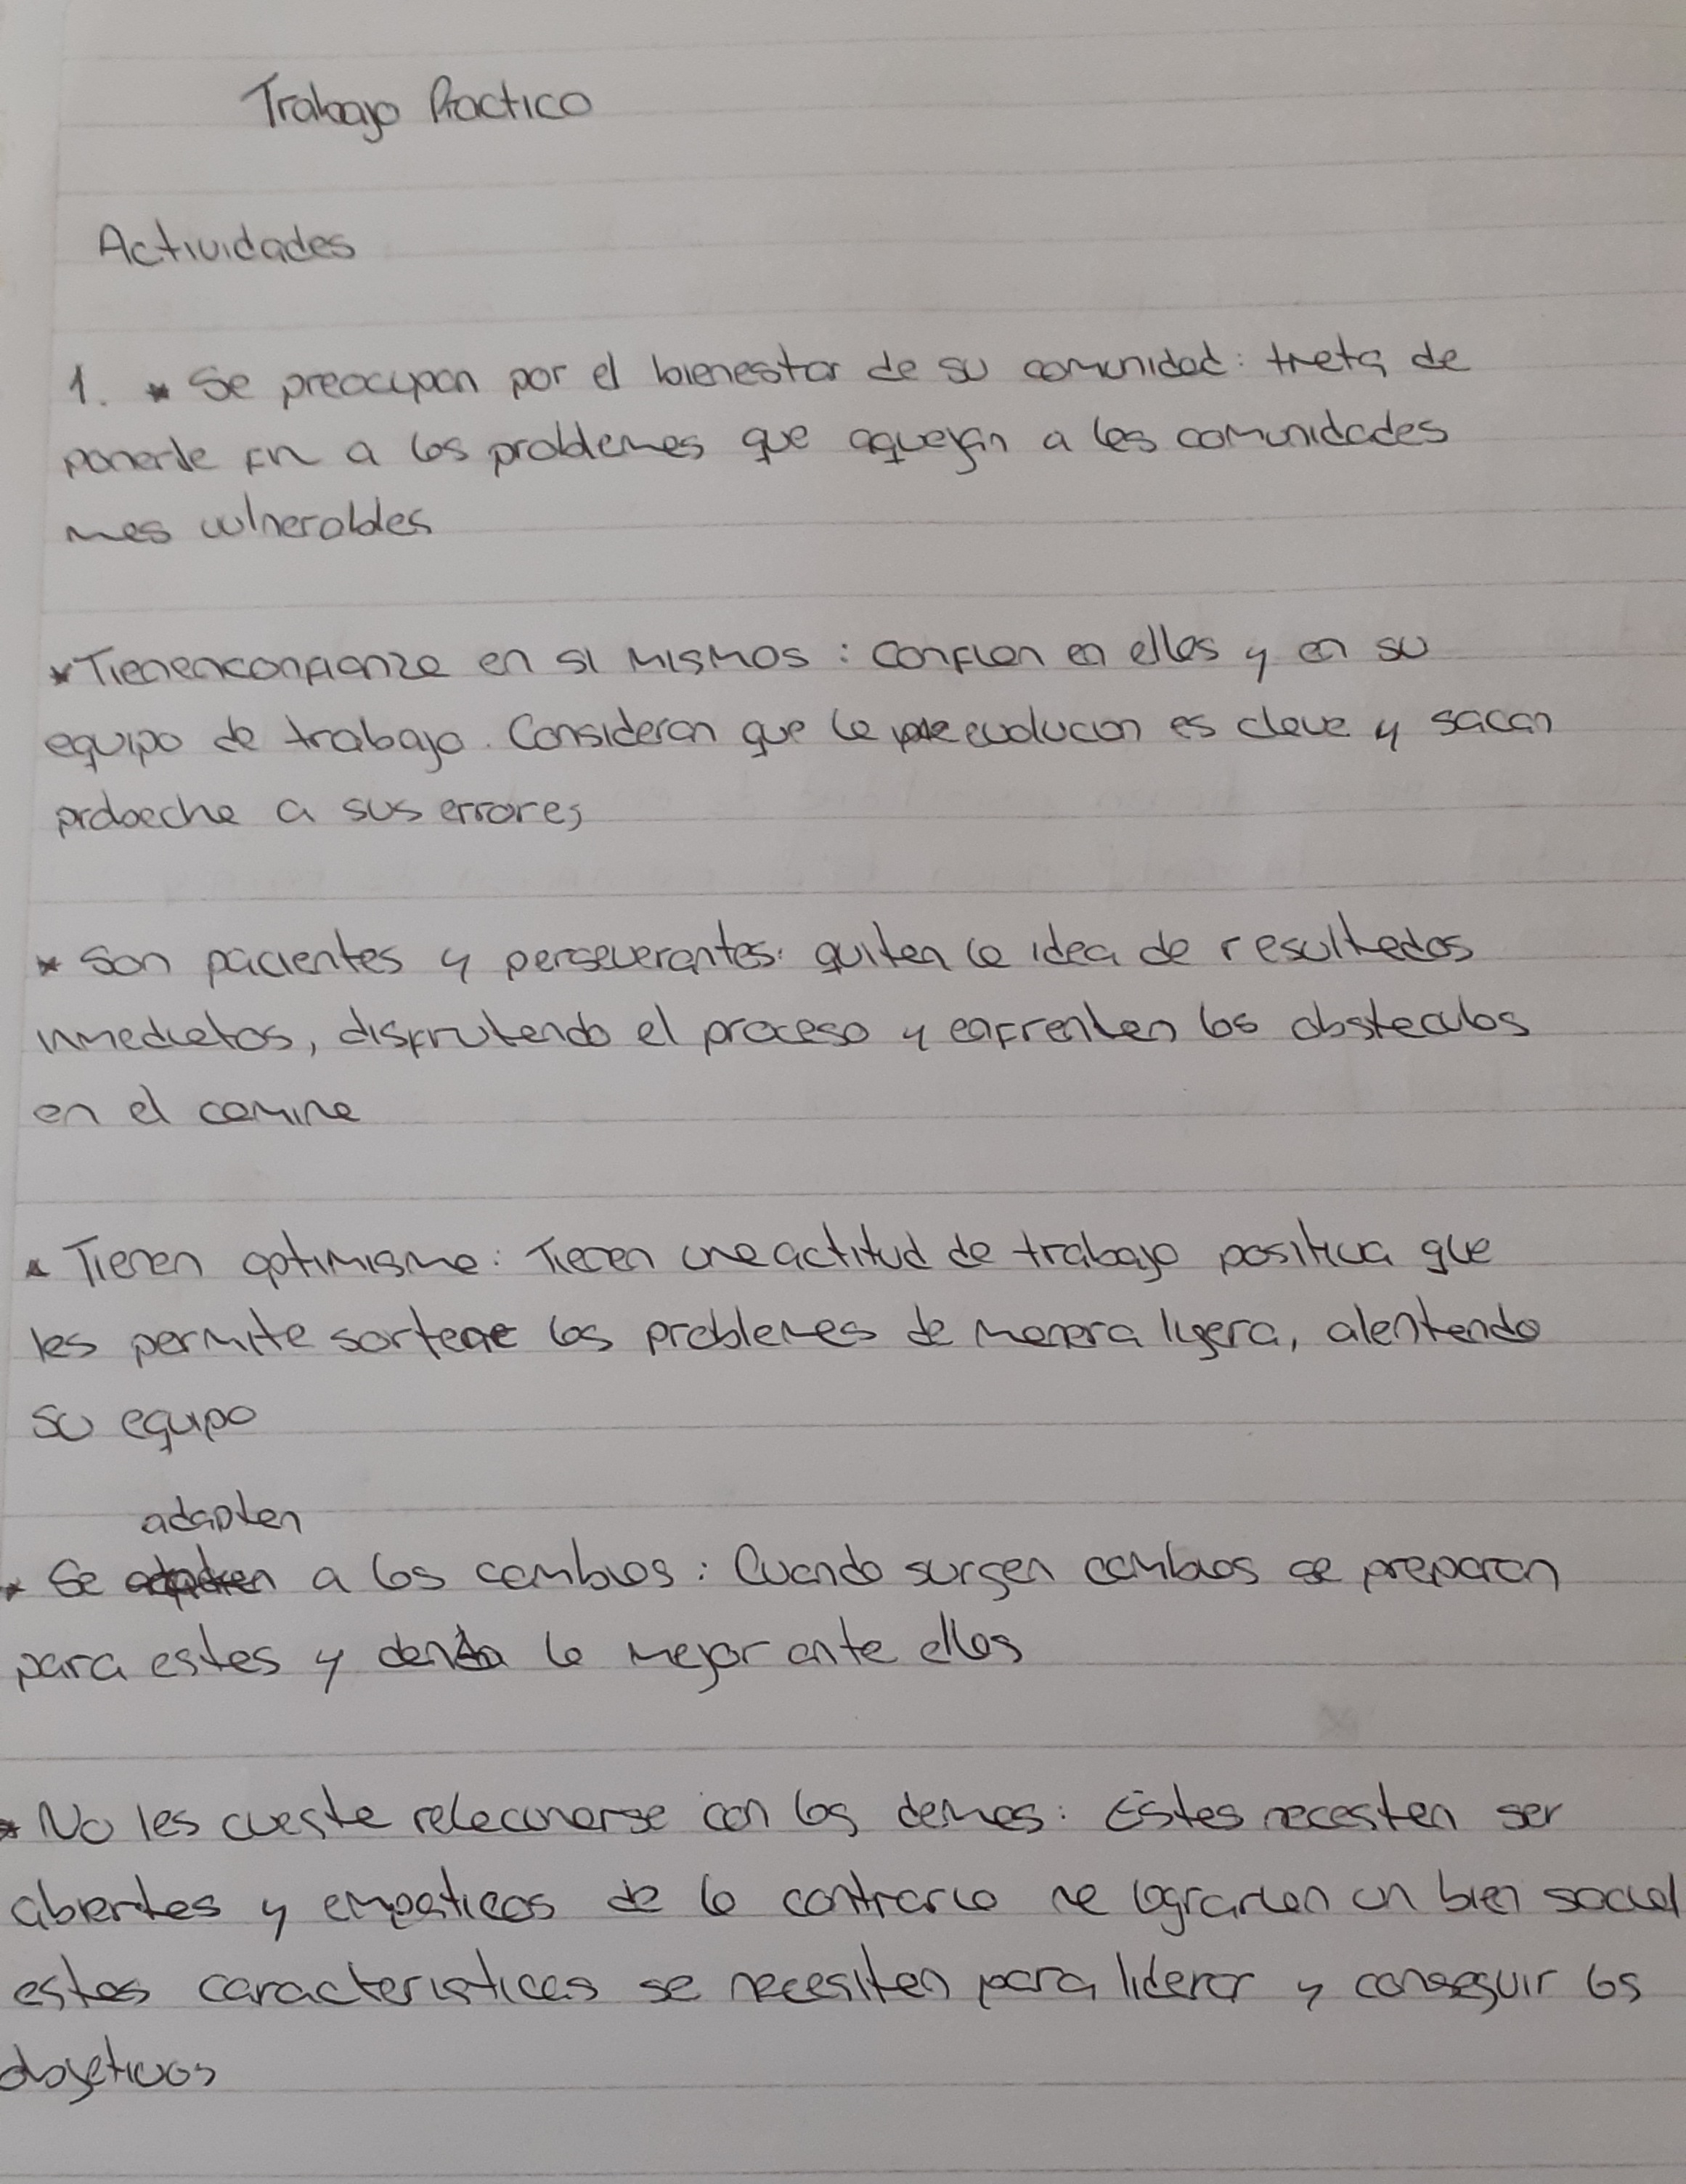 Trabajo Practico
Actividades
1. * Se preocupan por el bienestar de su comunidad: trata de
ponerle fin a los problemas que aquejan a las comunidades
mas vulnerables
* Tienen confianza en si mismos: Confian en ellos y en su
equipo de trabajo. Consideran que la evolucion es clave y sacan
provecho a sus errores
* Son pacientes y perseverantes: quitan la idea de resultados
inmediatos, disfrutando el proceso y enfrentan los obstaculos
en el camino
* Tienen optimismo: Tienen una actitud de trabajo positiva que
les permite sortear los problemas de manera ligera, alentando
su equipo
adaptan
* Se a los cambios: Cuando surgen cambios se preparan
para estos y dando lo mejor ante ellos
* No les cuesta relacionarse con los demas: Estos necesitan ser
abiertos y empaticos de lo contrario no lograrian un bien social
estas caracteristicas se necesitan para liderar y conseguir los
objetivos